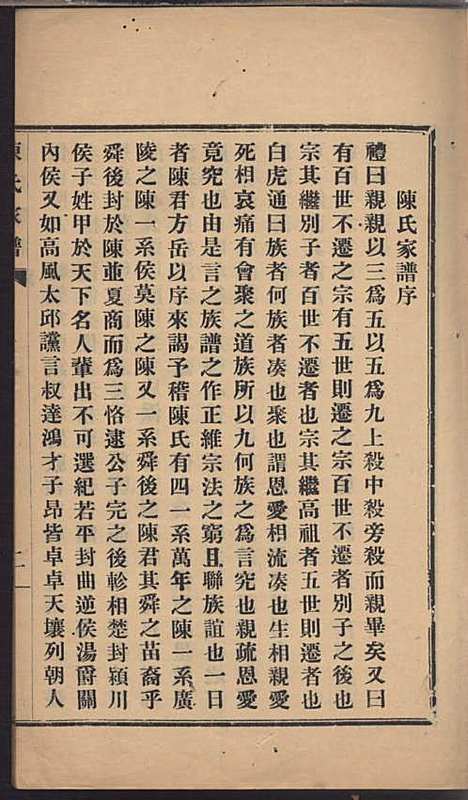 陳氏家譜序
禮曰親親以三爲五以五爲九上殺中殺旁殺而親畢矣又曰
有百世不遷之宗有五世則遷之宗百世不遷者別子之後也
宗其繼別子者百世不遷者也宗其繼高祖者五世則遷者也
白虎通曰族者何族者凑也聚也謂恩愛相流凑也生相親愛
死相哀痛有會聚之道族所以九何族之爲言究也親疏恩愛
竟究也由是言之族譜之作正維宗法之窮且聯族誼也一日
者陳君方岳以序來謁予稽陳氏有四一系萬年之陳一系廣
陵之陳一系侯莫陳之陳又一系舜後之陳君其舜之苗裔乎
舜後封於陳並夏商而爲三恪逮公子完之後軫相楚封潁川
侯子姓甲於天下名人輩出不可選紀若平封曲逆侯湯爵關
內侯又如高風太邱讜言叔達鴻才子昂皆卓卓天壤列朝人
陳氏家譜